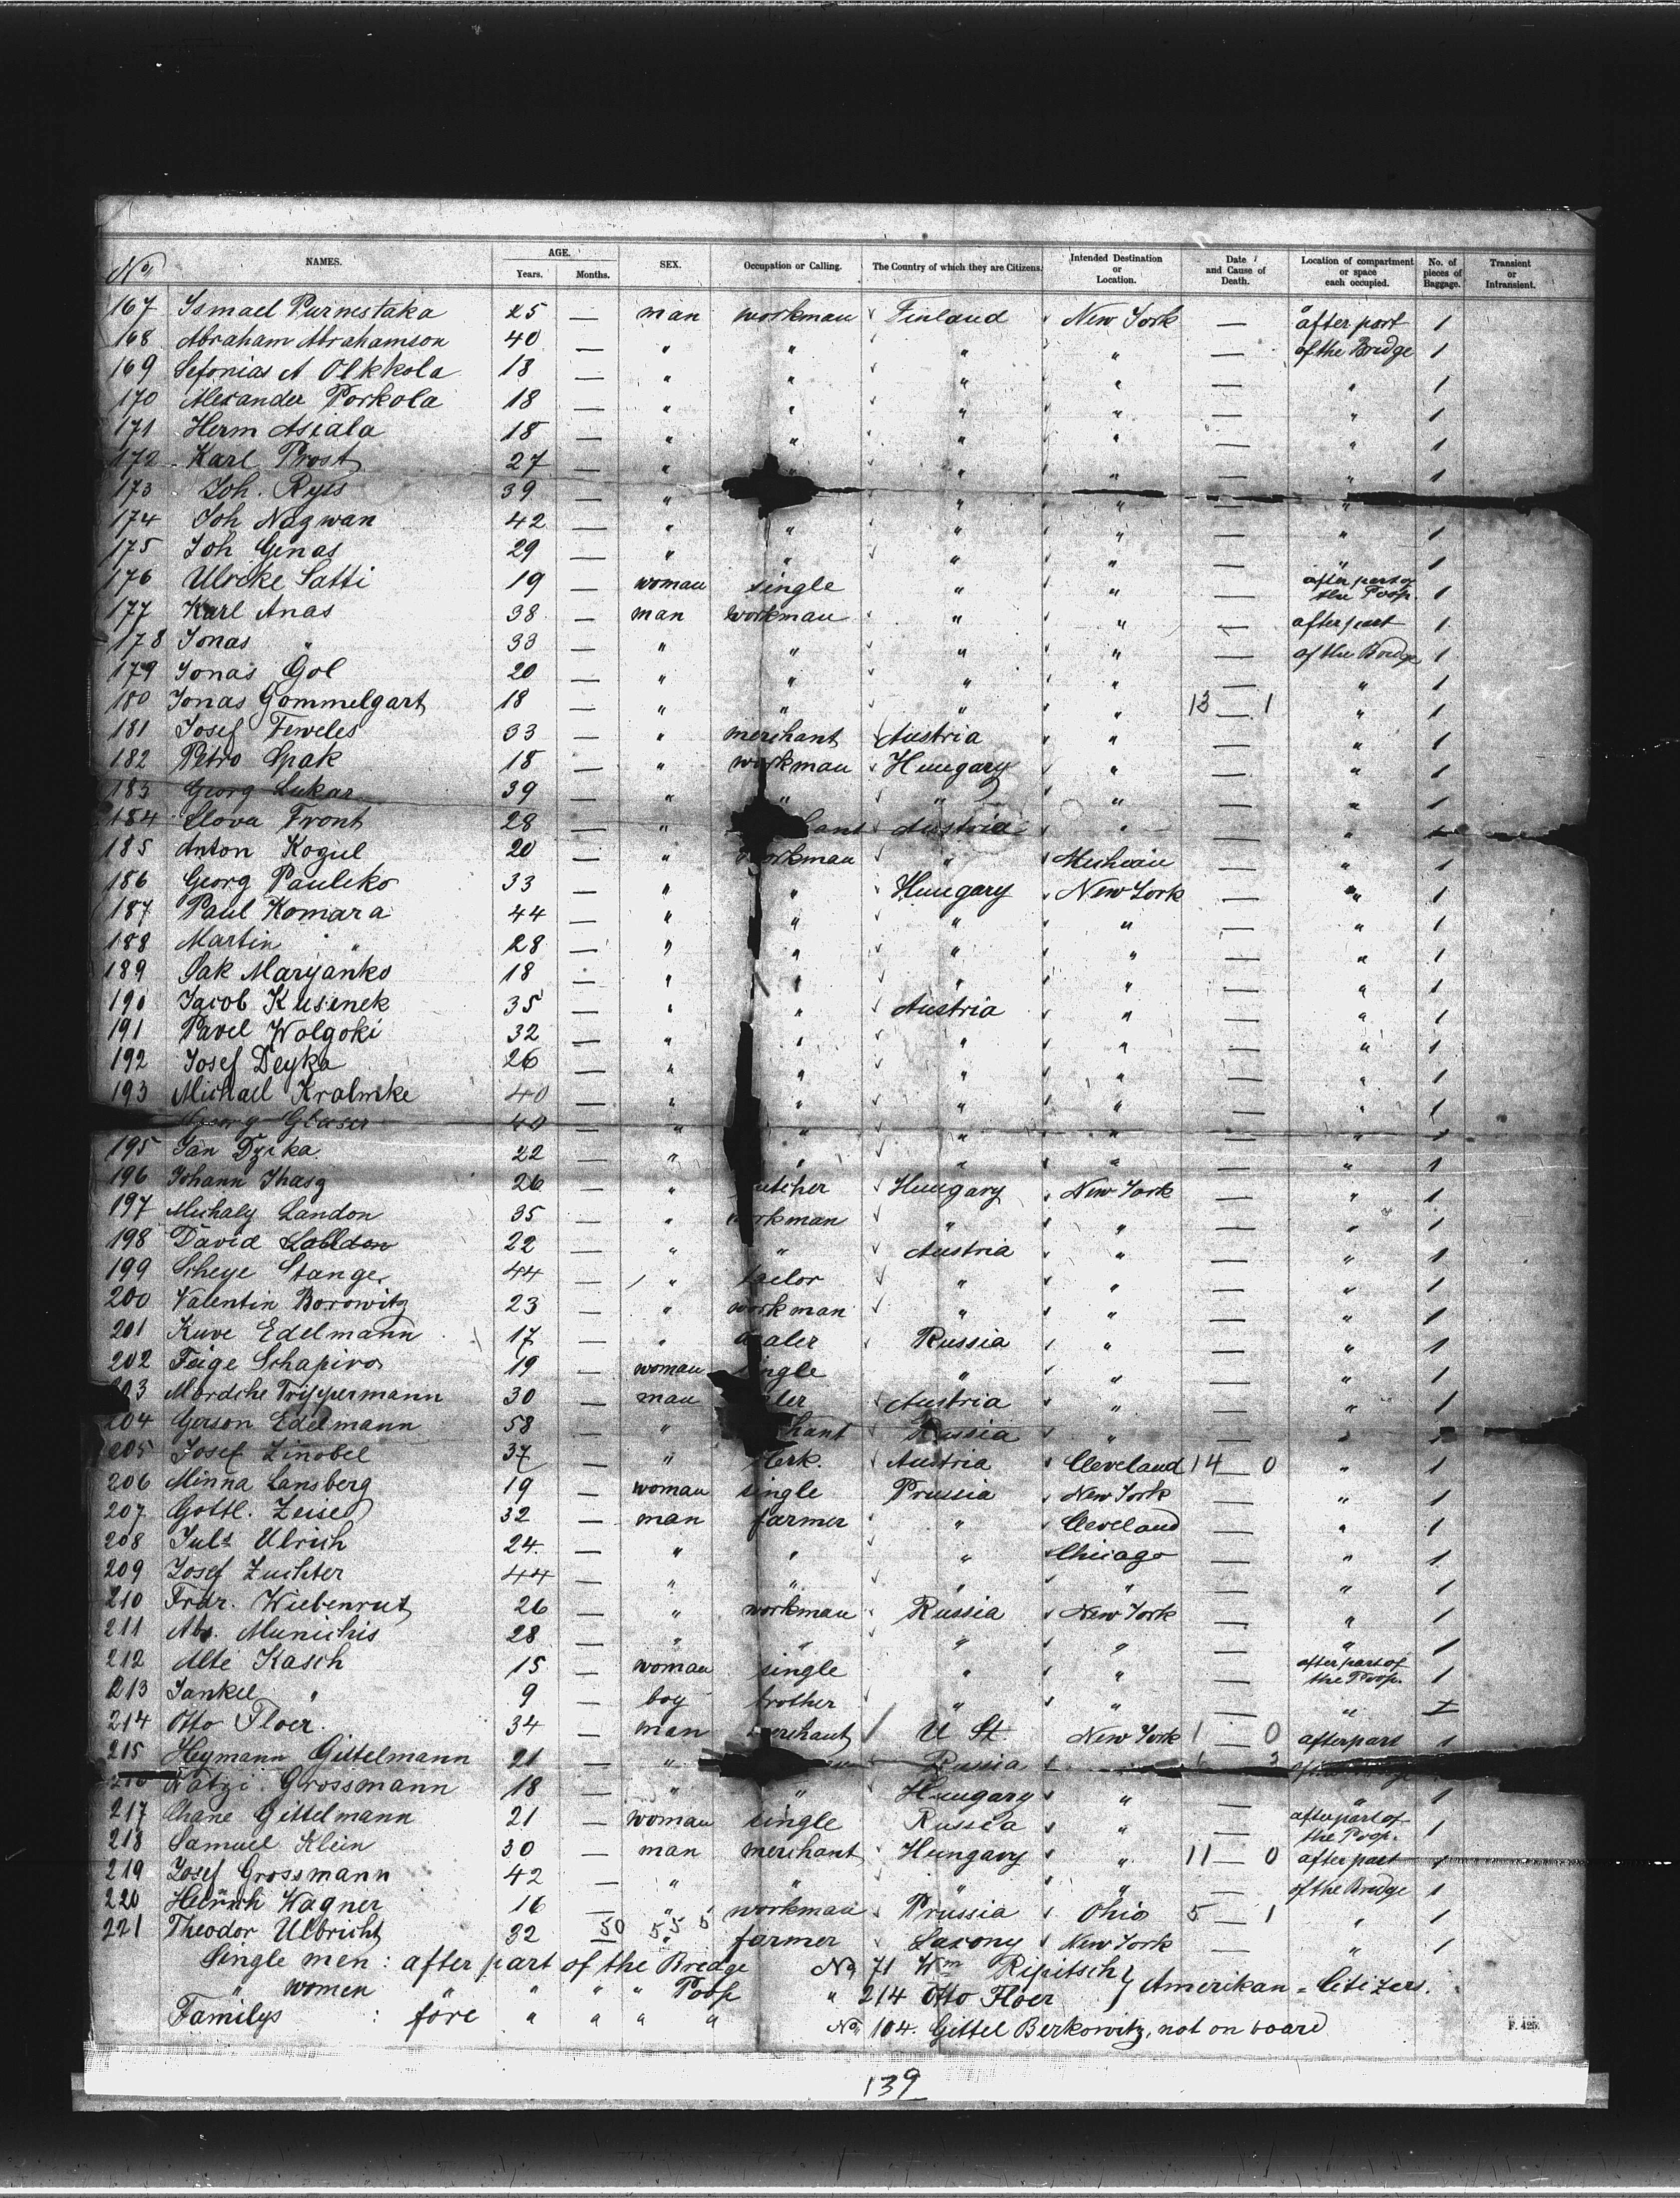 No. NAMES. AGE. Years. Months. SEX. Occupation or Calling. The Country of which they are Citizens. Intended Destination or Location. Date and Cause of Death. Location of compartment or space each occupied. No. of pieces of Baggage. Transient or Intransient.
167 Ismael Purnestaka 25 — man workman Finland New York — after part 1
168 Abraham Abrahamson 40 — " " " " — of the Bridge 1
169 Sefonias A Olkkola 18 — " " " " — " 1
170 Alexander Porkola 18 — " " " " — " 1
171 Herm Asiala 18 — " " " " — " 1
172 Karl Prost 27 — " " " " — " 1
173 Joh. Ryss 39 — " " " — "
174 Joh Nagwan 42 — " " " " — " 1
175 Joh Genas 29 — " " " " — " 1
176 Ulrike Satti 19 — woman single " " — after part of the Poop. 1
177 Karl Anas 38 — man workman " " — after part 1
178 Jonas " 33 — " " " " — of the Bridge 1
179 Jonas Gol 20 — " " " " — " 1
180 Jonas Gommelgart 18 — " " " " 13 — 1 " 1
181 Josef Feweles 33 — " merchant Austria " — " 1
182 Petro Spak 18 — " workman Hungary " — " 1
183 Georg Lukar 39 — " " " " — " 1
184 Slova Front 28 — " Austria " — " 1
185 Anton Kogul 20 — " workman " — " 1
186 Georg Pauliko 33 — " " Hungary New York — " 1
187 Paul Komara 44 — " " " " — " 1
188 Martin " 28 — " " " " — " 1
189 Pak Maryanko 18 — " " " " — " 1
190 Jacob Kusinek 35 — " " Austria " — " 1
191 Pavel Wolgoki 32 — " " " " — " 1
192 Josef Deyka 26 — " " " " — " 1
193 Michael Kralnike 40 — " " " " — " 1
Georg Glaser 40 — " " " " — " 1
195 Jan Dzika 22 — " " " " — " 1
196 Johann Ihasz 26 — " butcher Hungary New York — " 1
197 Michaly Landon 35 — " workman " " — " 1
198 David 22 — " " Austria " — " 1
199 Scheye Stanger 44 — " tailor " " — " 1
200 Valentin Borowitz 23 — " workman " " — " 1
201 Kuve Edelmann 17 — " Russia " — " 1
202 Feige Schapiro 19 — woman single " " — " 1
203 Mordche Trippermann 30 — man Austria " — " 1
204 Gerson Edelmann 58 — " Russia " — " 1
205 Josef Zinobel 37 — " clerk. Austria Cleveland 14 — 0 " 1
206 Minna Lansberg 19 — woman single Prussia New York — " 1
207 Gottl. Zeisel 32 — man farmer " Cleveland — " 1
208 Juls Ulrich 24 — " " " Chicago — " 1
209 Josef Zuchter 44 — " " " " — " 1
210 Frdr. Wiebenrut 26 — " workman Russia New York — " 1
211 Abr. Munichis 28 — " " " " — " 1
212 Alte Kasch 15 — woman single " " — after part of the Poop. 1
213 Jankel " 9 — boy brother " " — " 1
214 Otto Floer. 34 — man merchant U St. New York 1 — 0 after part 1
215 Heymann Gittelmann 21 — " Russia
216 Natzi Grossmann 18 — " " Hungary " — " 1
217 Chane Gittelmann 21 — woman single Russia " — after part of the Poop. 1
218 Samuel Klein 30 — man merchant Hungary " 11 — 0 after part 1
219 Josef Grossmann 42 — " " " " — of the Bridge 1
220 Heinrich Wagner 16 — " workman Prussia Ohio 5 — 1 " 1
221 Theodor Ulbricht 32 — " farmer Saxony New York — " 1
50 55 5
Single men : after part of the Bredge No 71 Wm Ripitsch
" women " " " " Poop " 214 Otto Floer } Amerikan = Citizers.
Familys : fore " " " " No 104. Gittel Berkowitz, not on board
F. 425.
139